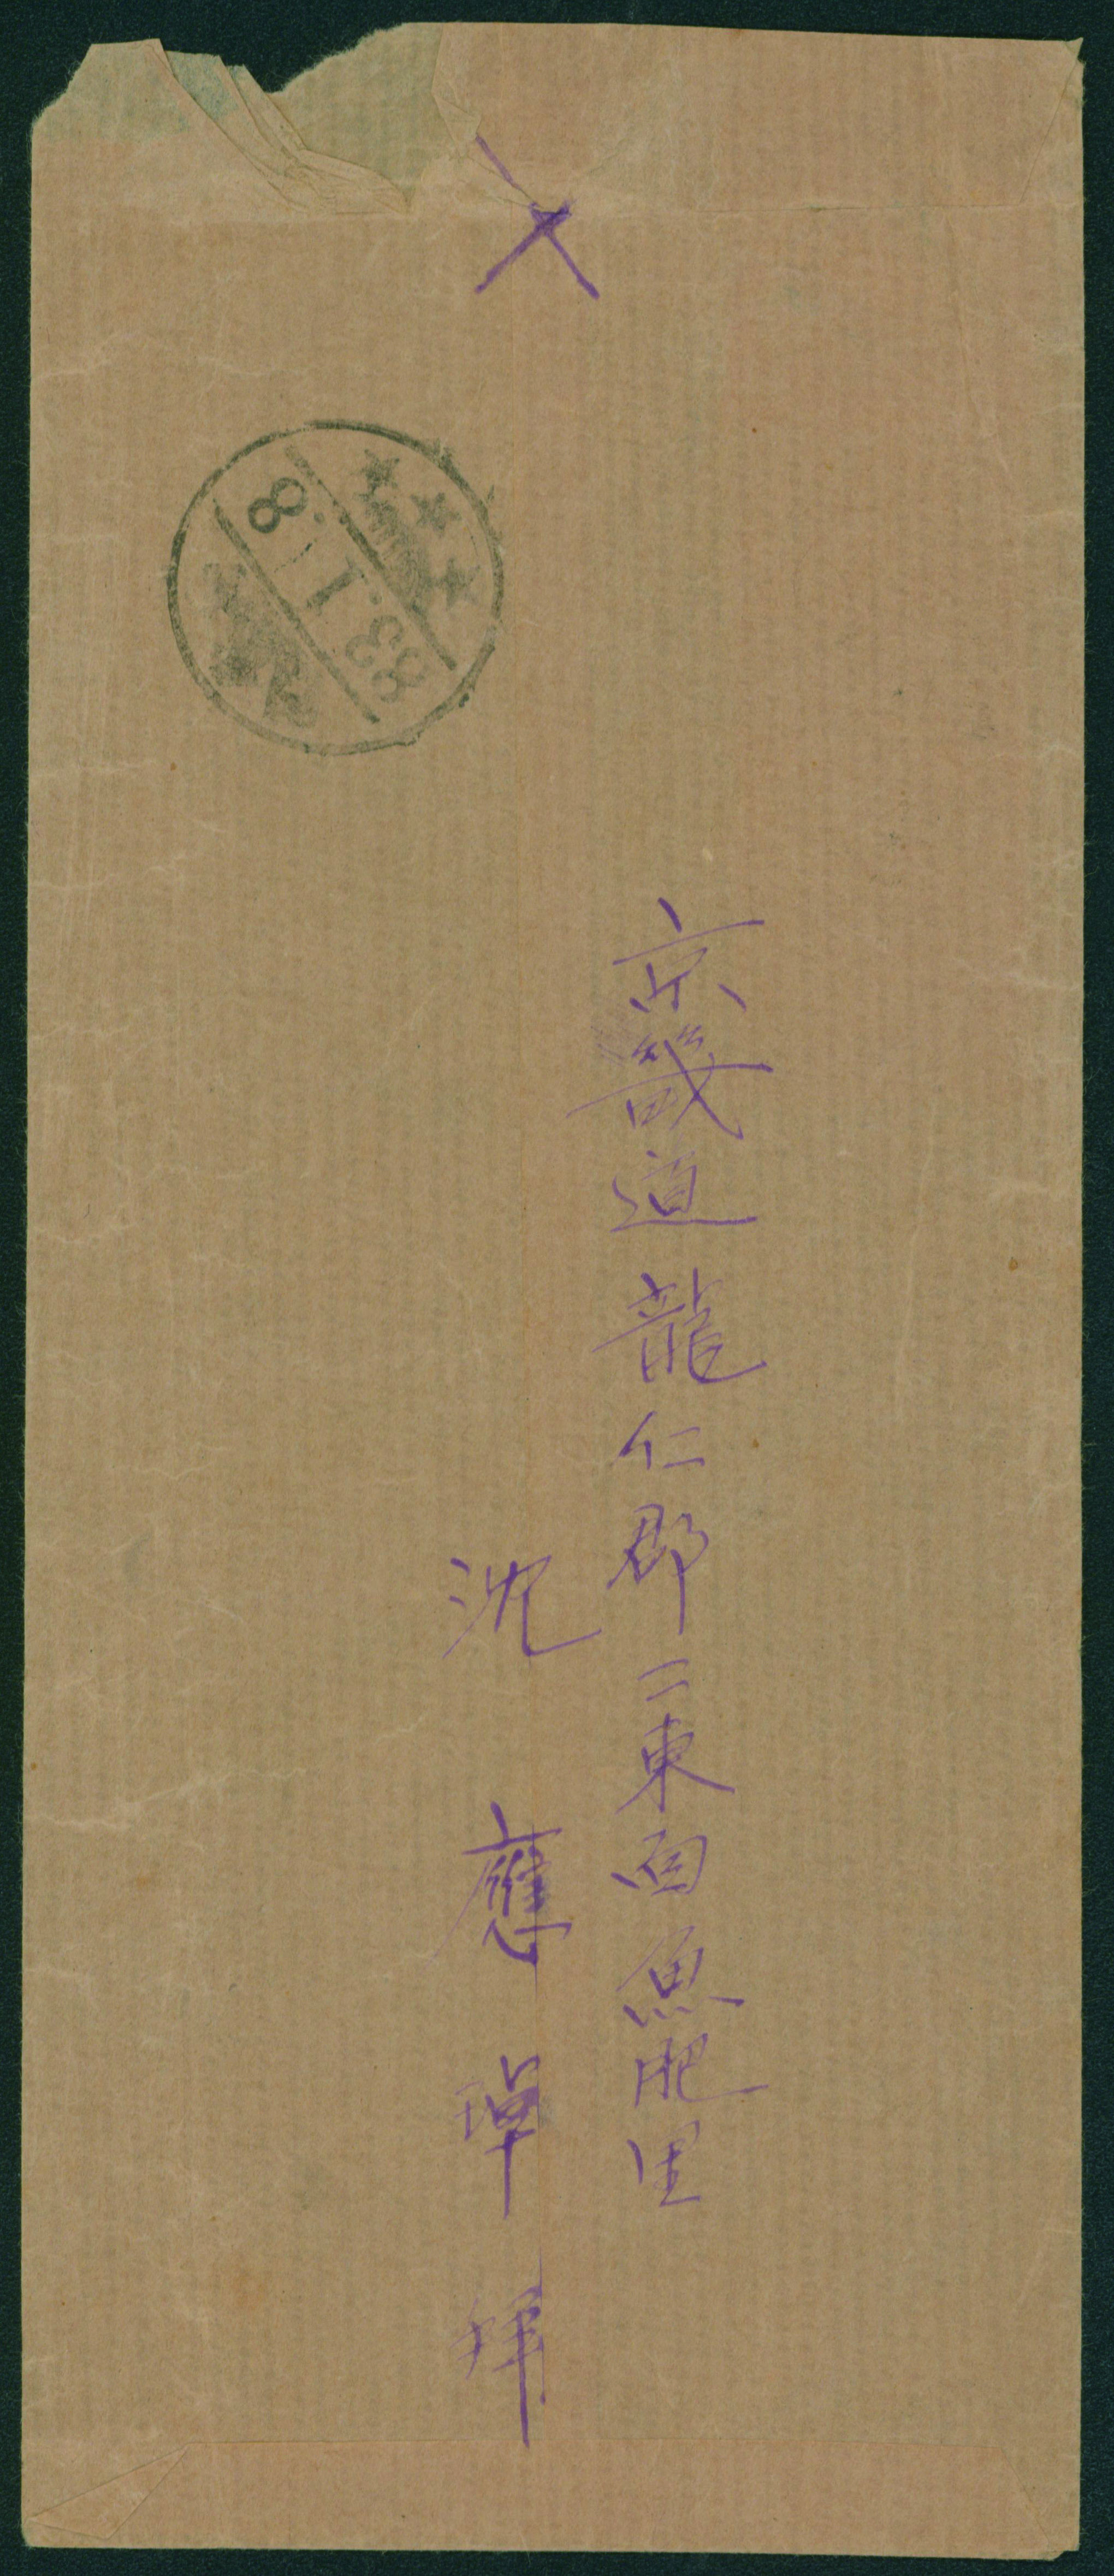 京畿道龍仁郡二東面魚肥里
沈應㻸拜
8.1.